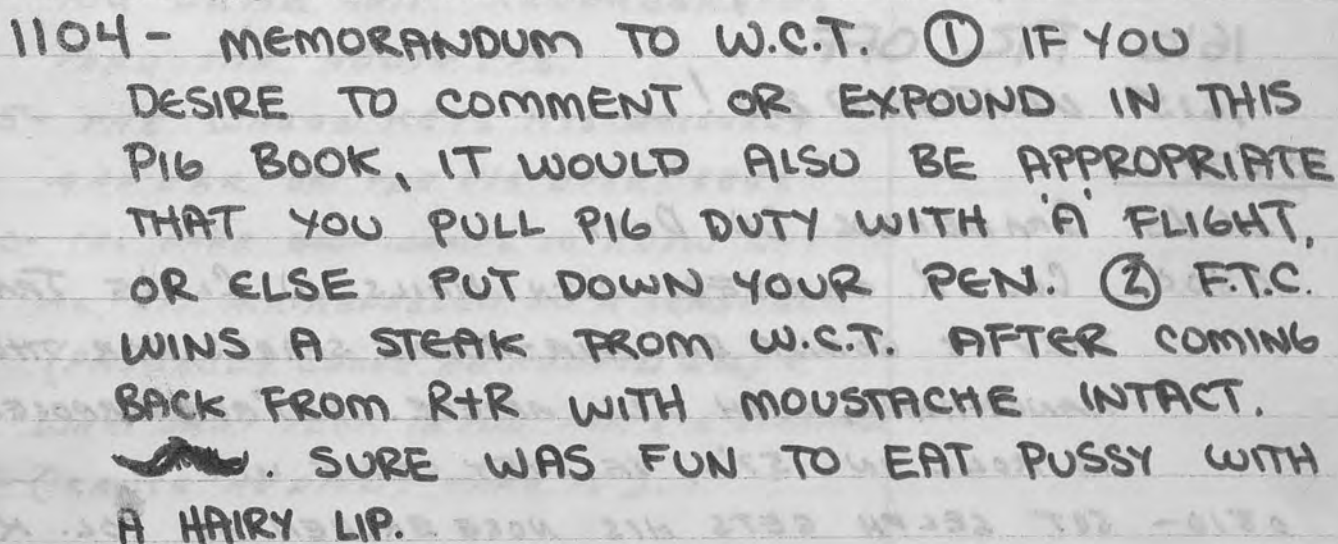 1104 - MEMORANDUM TO W.C.T. ① IF YOU
DESIRE TO COMMENT OR EXPOUND IN THIS
PIG BOOK, IT WOULD ALSO BE APPROPRIATE
THAT YOU PULL PIG DUTY WITH 'A' FLIGHT,
OR ELSE PUT DOWN YOUR PEN. ② F.T.C.
WINS A STEAK FROM W.C.T. AFTER COMING
BACK FROM R+R WITH MOUSTACHE INTACT.
. SURE WAS FUN TO EAT PUSSY WITH
A HAIRY LIP.